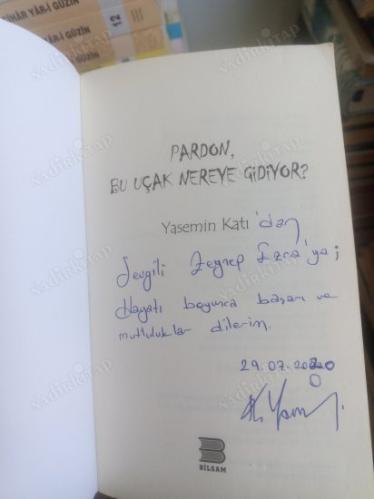 CİHÂR YÂR-İ GÜZİN
YÂR-İ GÜZİN
12
PARDON,
BU UÇAK NEREYE GİDİYOR?
Yasemin Katı'dan
Sevgili Zeynep Ezra'ya;
Hayatı boyunca başarı ve
mutluluklar dilerim.
29.07.2020
BİLSAM
NadirKitap